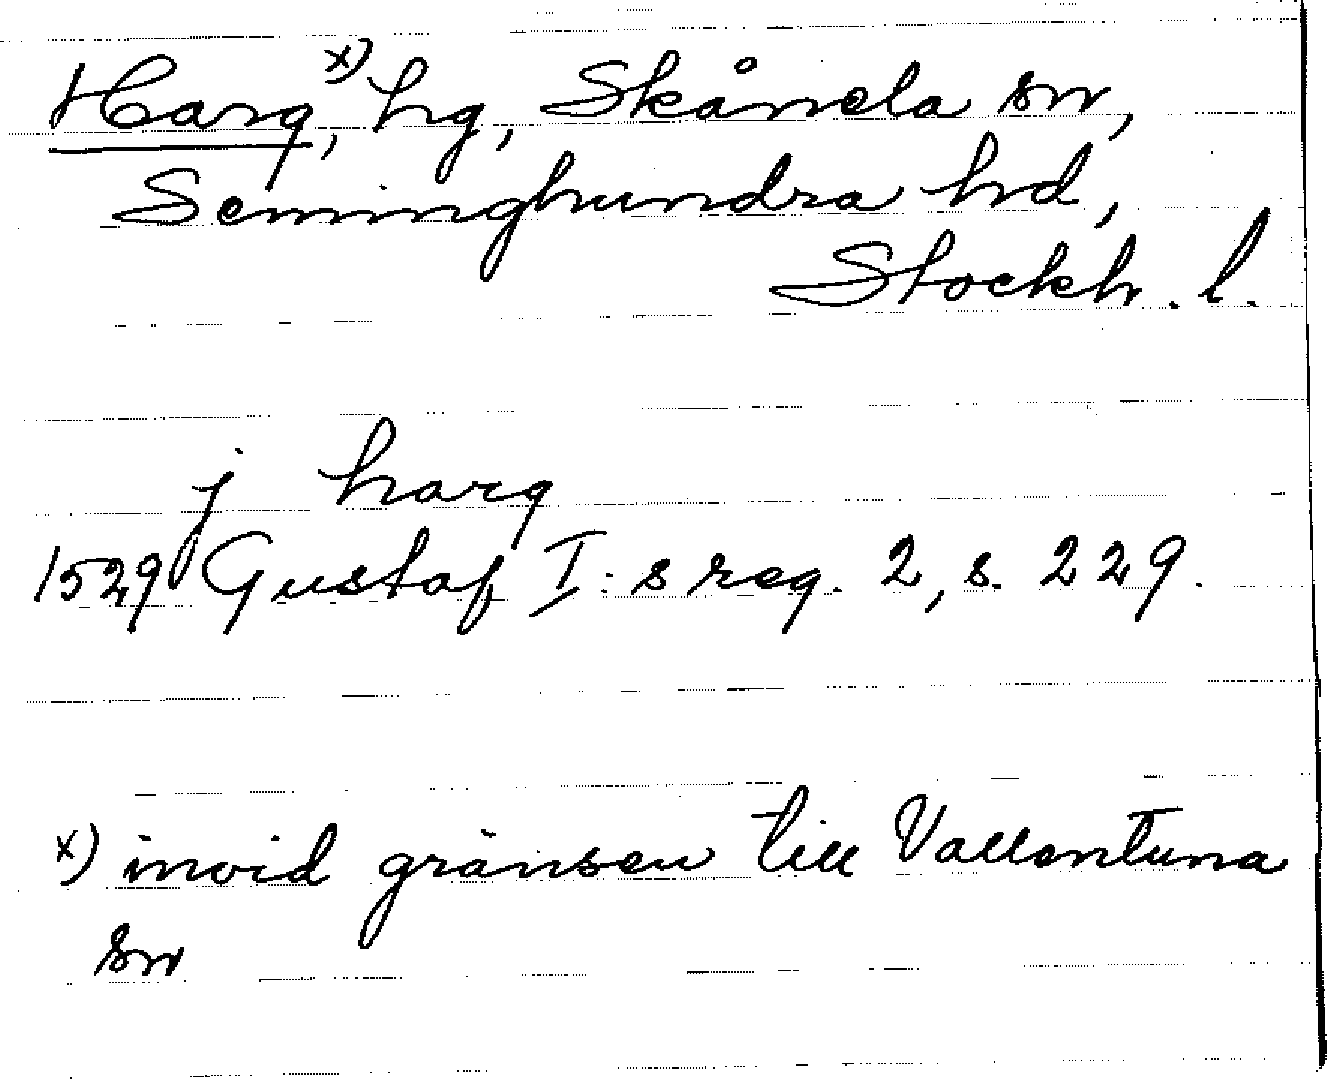 Harg,ˣ⁾ hg, Skånela sn,
Seminghundra hd,
Stockh. l.
j harg
1529 Gustaf I:s reg. 2, s. 229.
x) invid gränsen till Vallentuna
sn